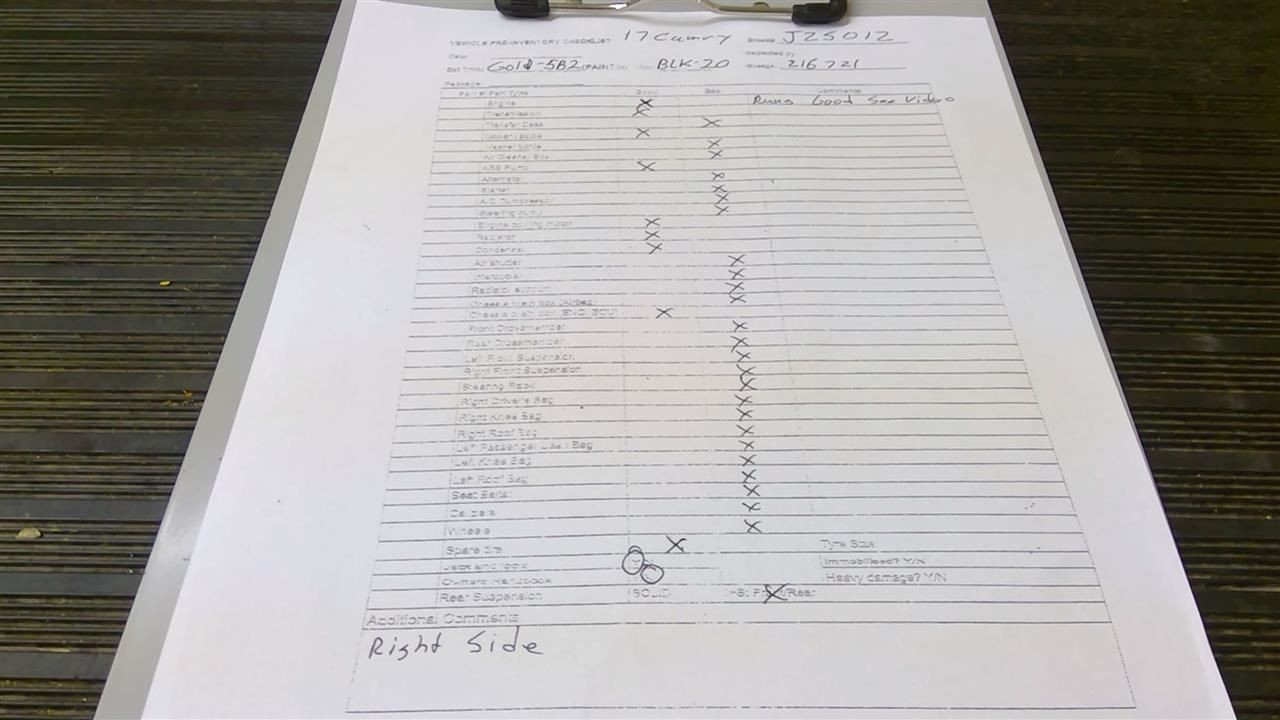 VEHICLE PRE-INVENTORY CHECKLIST 17 Camry JZ5012
Date: Inspected by
Ext Trim: Gold-5B2 (PAINT BLK-20 216721
Package:
Part Type Good Bad Comments
Engine X Runs Good See Video
Transmission X
Transfer Case X
Coolant bottle X
Washer bottle X
Air Cleaner Box X
ABS Pump X
Alternator X
Starter X
A/C Compressor X
Steering pump X
Engine cooling motor X
Radiator X
Condenser X
Air shutter X
Intercooler X
Radiator support X
Chassis brain box (Airbag) X
Chassis brain box (ENG. ECU) X
Front Crossmember X
Rear Crossmember X
Left Front Suspension X
Right Front Suspension X
Steering Rack X
Right Driver's Bag X
Right Knee Bag X
Right Roof Bag X
Left Passenger Dash Bag X
Left Knee Bag X
Left Roof Bag X
Seat Belts X
Calipers X
Wheels X
Spare tire X Tyre Size:
Jack and tools Immobilised? Y/N
Owners Handbook Heavy damage? Y/N
Rear Suspension SOLID X /Rear
Additional Comments
Right Side